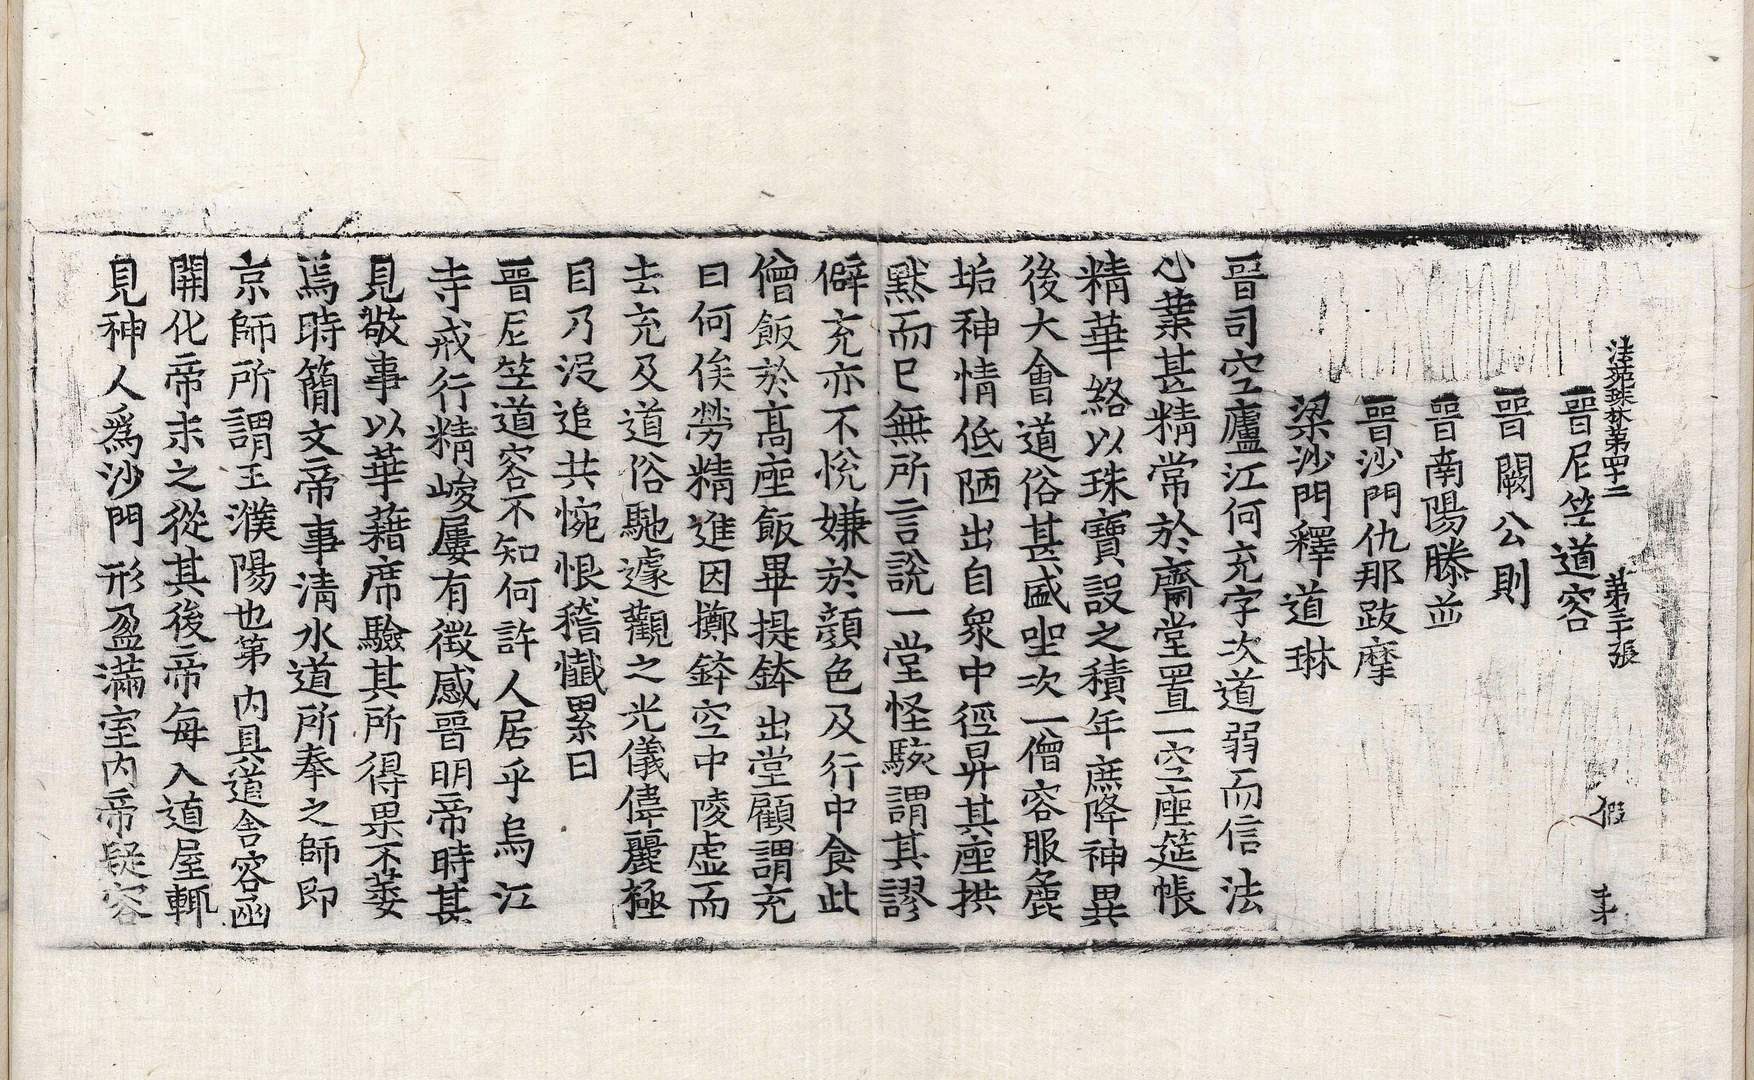 法苑珠林第四十二　第二十張　假
晉尼竺道容
晉闕公則
晉南陽滕並
晉沙門仇那跋摩
梁沙門釋道琳
晉司空廬江何充字次道弱而信法
心業甚精常於齋堂置一空座筵帳
精華絡以珠寶設之積年庶降神異
後大會道俗甚盛坐次一僧容服麁
垢神情低陋出自衆中徑昇其座拱
默而已無所言說一堂怪駭謂其謬
僻充亦不悅嫌於顔色及行中食此
僧飯於高座飯畢提鉢出堂顧謂充
曰何俟勞精進因擲鉢空中陵虛而
去充及道俗馳遽觀之光儀偉麗極
目乃沒追共惋恨稽懺累日
晉尼竺道容不知何許人居乎烏江
寺戒行精峻屢有徵感晉明帝時甚
見敬事以華藉席驗其所得果不萎
焉時簡文帝事清水道所奉之師即
京師所謂王濮陽也第內具道舍容函
開化帝未之從其後帝每入道屋輒
見神人爲沙門形盈滿室內帝疑容